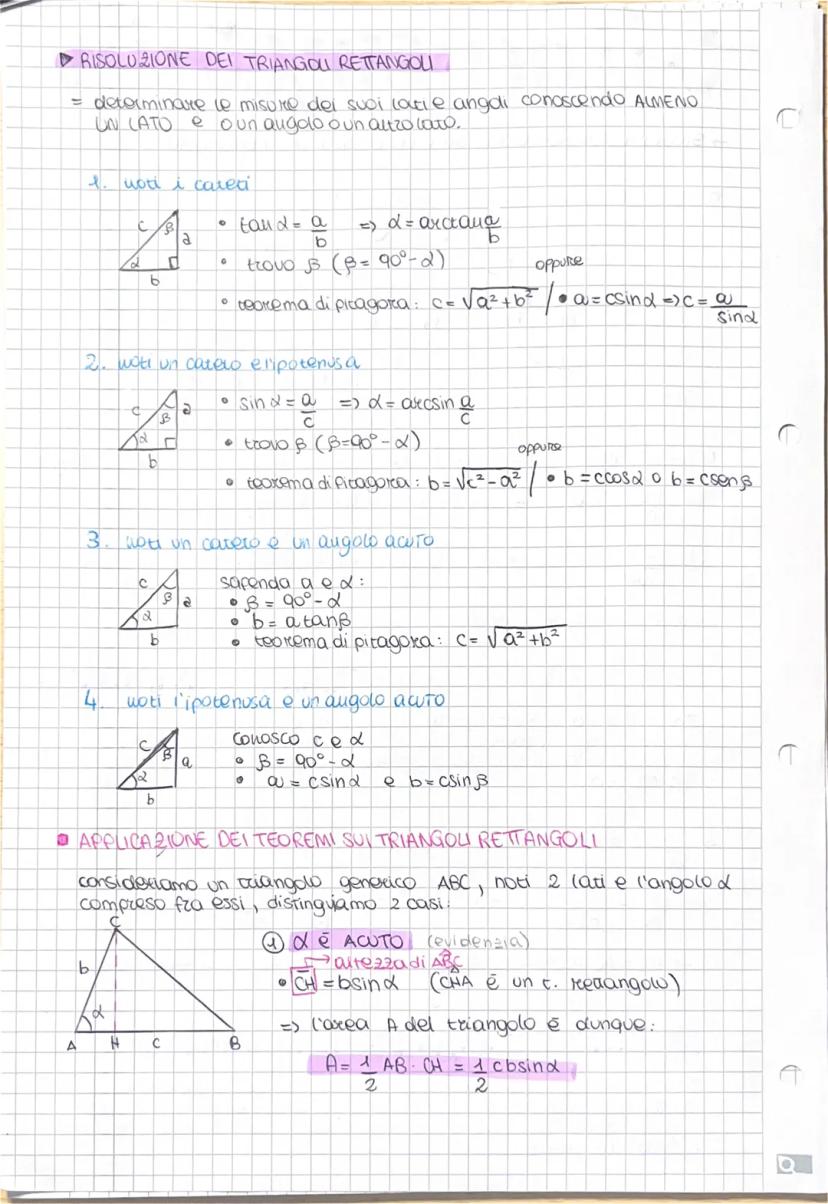 ▶ RISOLUZIONE DEI TRIANGOLI RETTANGOLI
= determinare le misure dei suoi lati e angoli conoscendo ALMENO
UN LATO e o un angolo o un altro lato.
1. noti i cateti
c β a α b
• tan α = a/b => α = arctan a/b
• trovo β (β = 90° - α)
oppure
• teorema di pitagora: c = √(a² + b²) / • a = c sin α => c = a/sin α
2. noti un cateto e l'ipotenusa
c β a α b
• sin α = a/c => α = arcsin a/c
• trovo β (β = 90° - α)
oppure
• teorema di Pitagora: b = √(c² - a²) / • b = c cos α o b = c sen β
3. noti un cateto e un angolo acuto
c β a α b
sapenda a e α:
• β = 90° - α
• b = a tan β
• teorema di pitagora: c = √(a² + b²)
4. noti l'ipotenusa e un angolo acuto
c β a α b
conosco c e α
• β = 90° - α
• a = c sin α e b = c sin β
APPLICAZIONE DEI TEOREMI SUI TRIANGOLI RETTANGOLI
consideriamo un triangolo generico ABC, noti 2 lati e l'angolo α
compreso fra essi, distinguiamo 2 casi:
C b α A H c B
① α è ACUTO (evidenzia)
→ altezza di ABC
• CH = b sin α (CHA è un t. rettangolo)
=> l'area A del triangolo è dunque:
A = 1/2 AB · CH = 1/2 c b sin α